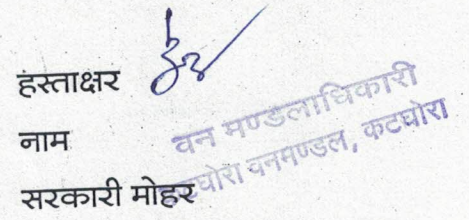 हस्ताक्षर
नाम
सरकारी मोहर
वन मण्डलाधिकारी
कटघोरा वनमण्डल, कटघोरा